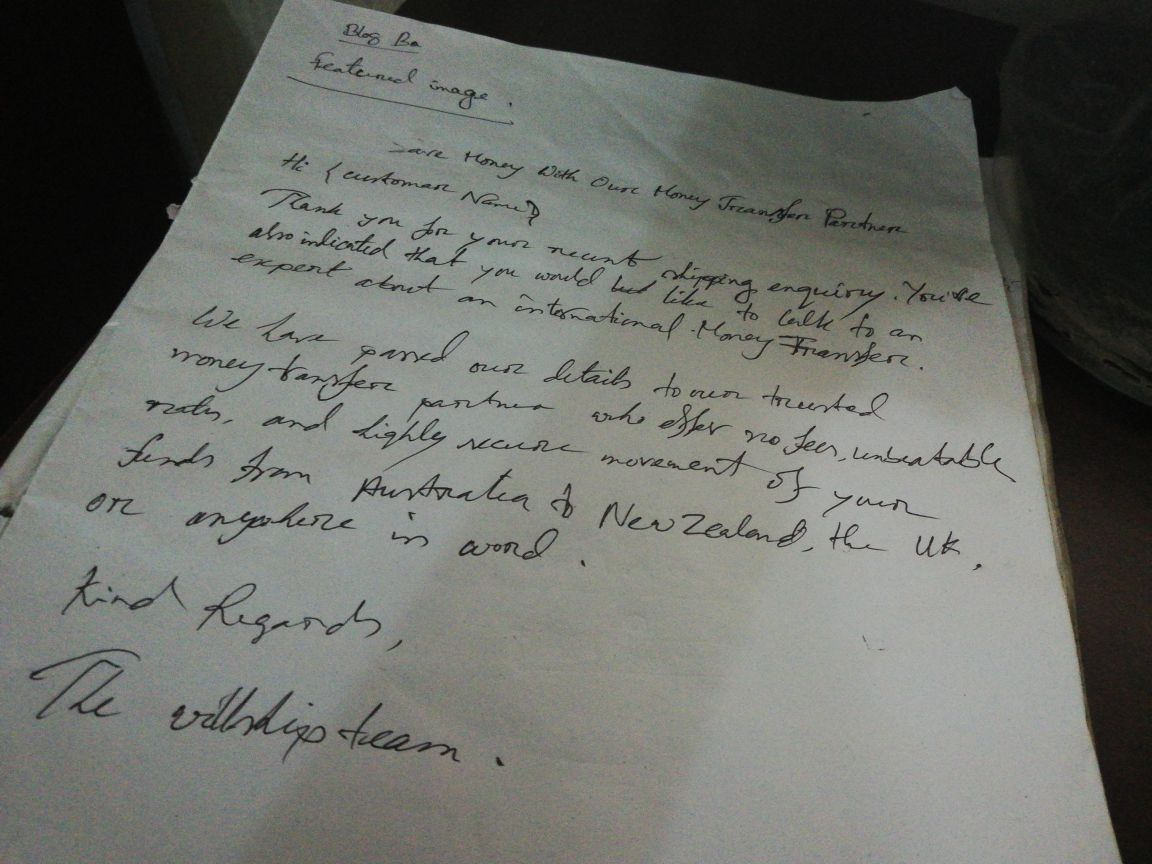 Blog Ba
Featured image.
Save Money With Our Money Transfer Partner
Hi {customar Name}
Thank you for your recent shipping enquiry. You've
also indicated that you would like to talk to an
expert about an international Money Transfer.
We have passed our details to our trusted
money transfer partner who offer no fees, unbeatable
rates, and highly secure movement of your
funds from Australia to New Zealand, the UK,
or anywhere in word.
Kind Regards,
The team.